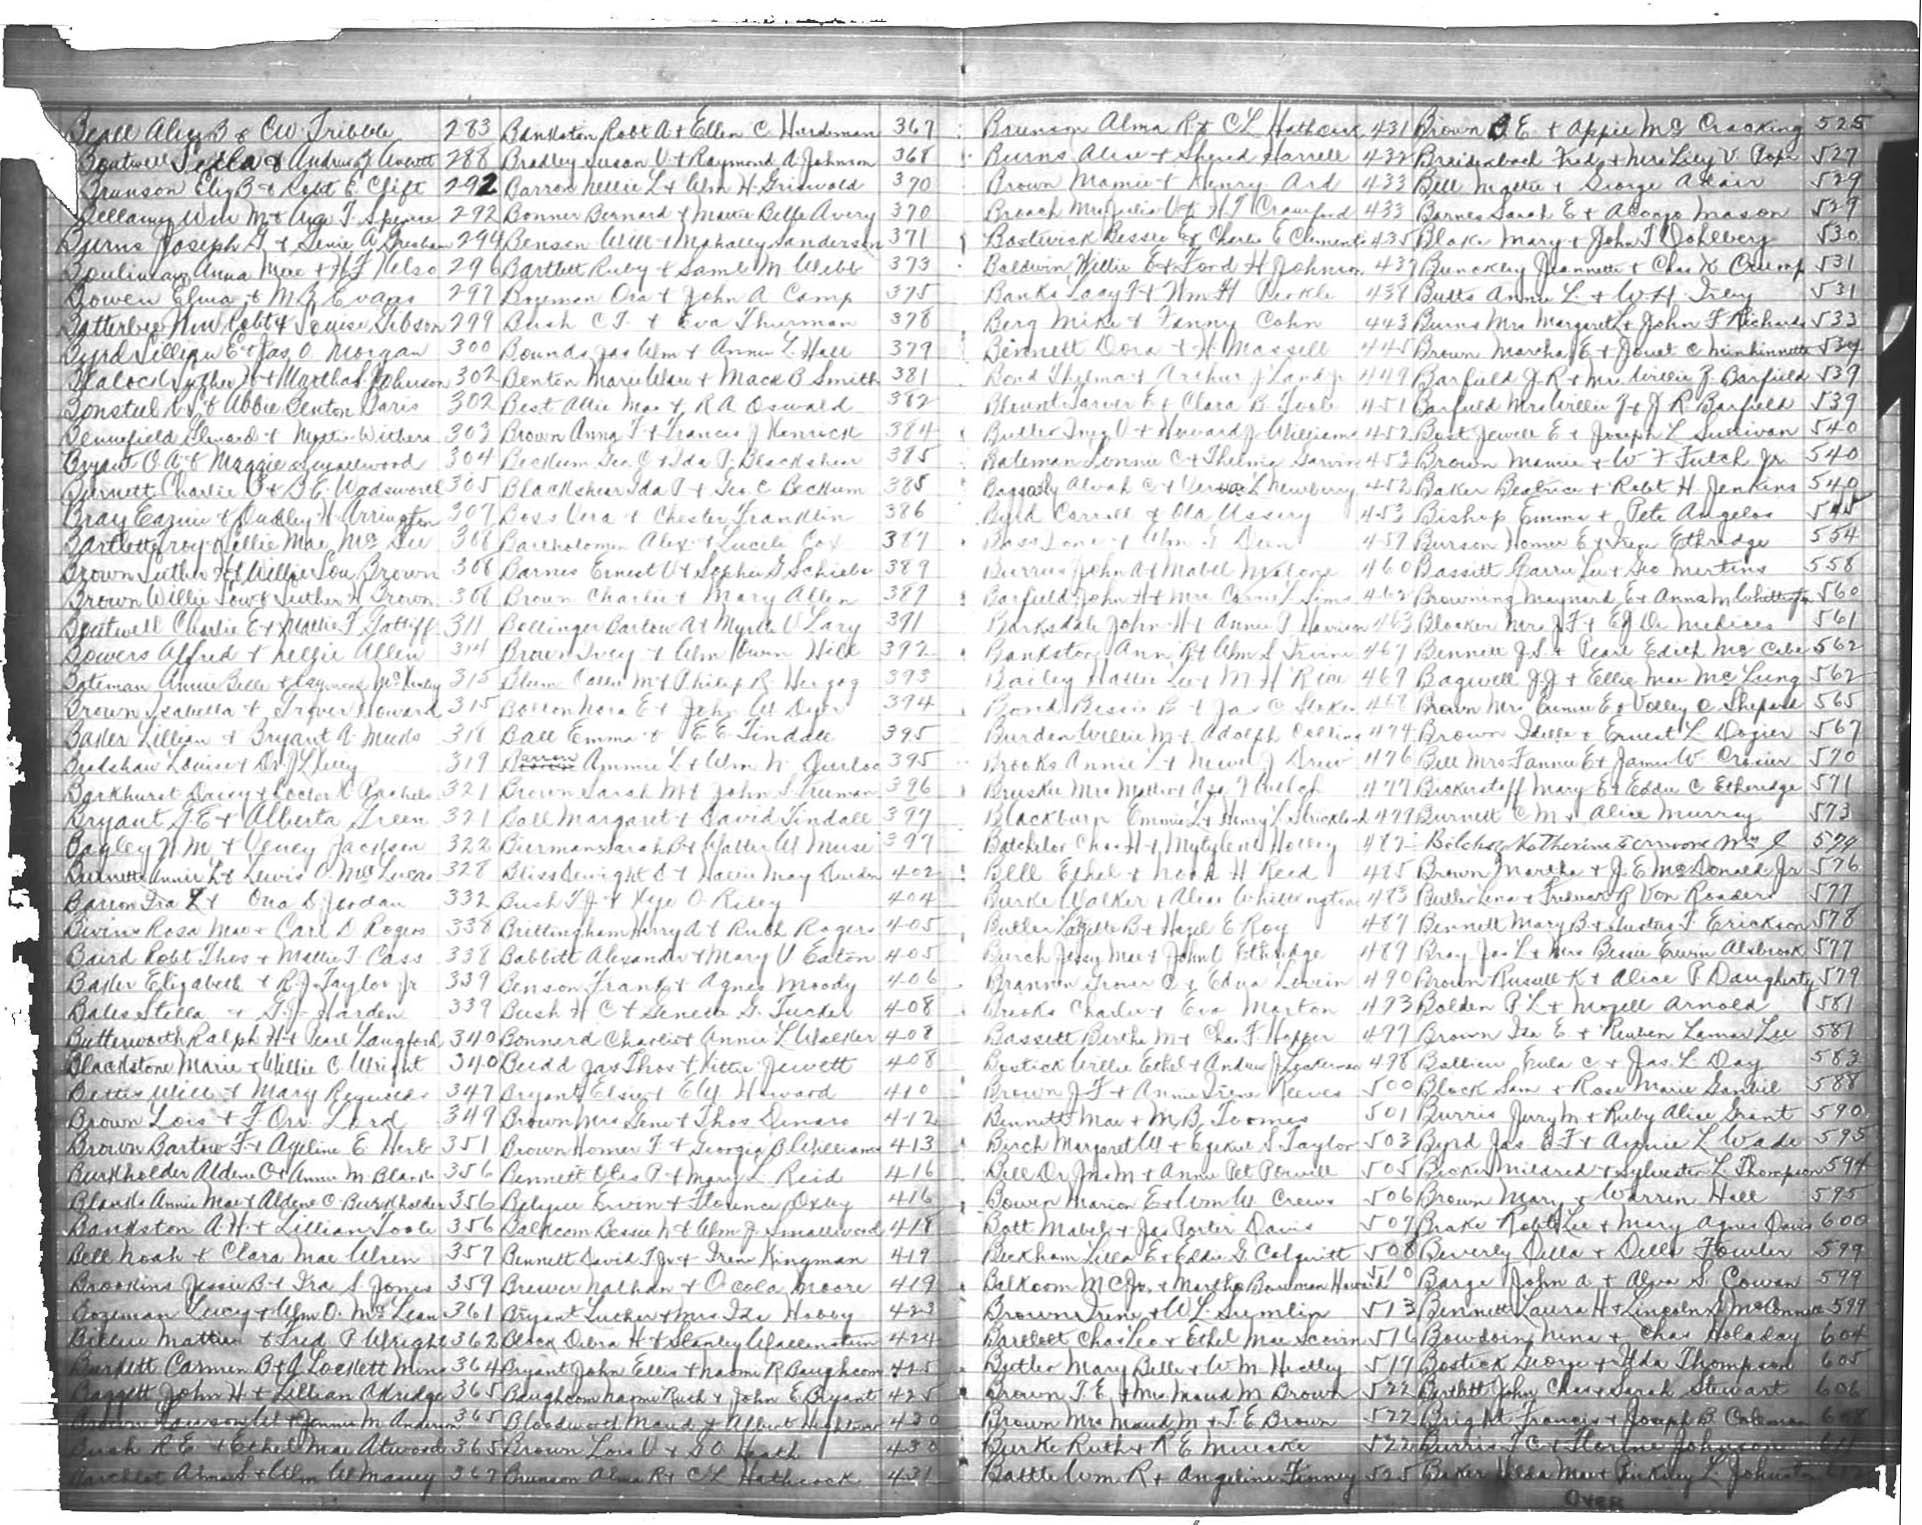 Beall Alice B & CW Tribble 283
Boutwell Stella & Andrew J Averett 288
Brunson Eliz B & Robt E Clift 292
Bellamy Wm M & Spence 292
Burns Joseph G & A Gresham 294
Anna Mae & H F Kelso 296
Bowen Elma & M J Evans 297
Robt & Louise Gibson 299
Byrd Lillian E & Jas O Morgan 300
Blalock Luther & Martha Johnson 302
& Abbie Benton Davis 302
Bennefield & Mattie Withers 303
Bryant O A & Maggie Smallwood 304
Burnett Charlie O & B E Wadsworth 305
Bray & Dudley H Arrington 307
Bartlett Troy & Nellie Mae McGee 308
Brown Luther H & Willie Lou Brown 308
Brown Willie Lou & Luther H Brown 308
Boutwell Charlie E & Mattie F 311
Bowers Alfred & Nellie Allen 314
Bateman Annie Belle & McKinley 315
Brown Isabella & Grover Howard 315
Baker Lillian & Bryant A Meeks 318
Bradshaw Louise & Dr J L Kelly 319
Barkhurst Daisy & 321
Bryant G E & Alberta Green 321
Bagley N M & Jackson 322
Burnett Annie L & Lewis O McLucas 328
Barron Ira L & Ona D Jordan 332
Bivins Rosa Mae & Carl D Rogers 338
Baird Robt Thos & Mattie T Cass 338
Baker Elizabeth & R J Taylor Jr 339
Bales Stella & G J Harden 339
Butterworth Ralph H & Pearl Langford 340
Blackstone Marie & Willie C Wright 340
Bettis Will & Mary 347
Brown Lois & F Orr Lord 349
Brown Bartow F & Angeline E Herb 351
Burkholder Aldene O & Annie M Blanks 356
Blanks Annie Mae & Aldene O Burkholder 356
Bankston A H & Lillian Toole 356
Bell Noah & Clara Mae Wren 357
Brookins Jessie B & Ira S Jones 359
Bozeman Lucy & Wm O McLean 361
& Fred P Wright 362
Burkett Carmen B & J Lockett Mims 364
Baggett John H & Lillian Aldridge 365
& Jennie M Anderson 365
Bush R E & Ethel Mae Atwood 365
Alma S & Wm W Massey 367
Bankston Robt A & Ellen C Hurdeman 367
Bradley Susan V & Raymond A Johnson 368
Barron Nellie L & Wm H Griswald 370
Bonner Bernard & Mattie Belle Avery 370
Benson Will & Mahalley Sanderson 371
Bartlett Ruby & Saml M Webb 373
Bozeman Ora & John A Camp 375
Bush C T & Eva Thurman 378
Bounds Jas Wm & Annie L Hall 379
Benton Marie Wise & Mack B Smith 381
Best Allie Mae & R A Oswald 382
Brown Anna T & Francis J Kenrick 384
Beckum Geo C & Ida P Blackshear 385
Blackshear Ida P & Geo C Beckum 385
Bass Vera & Chester Franklin 386
Bartholomew Alex & Lucile Cox 387
Barnes Ernest V & Sophie G Schiebe 389
Brown Charlie & Mary Allen 389
Bollinger Bartow A & Myrtle V Lary 391
Brown Ivey & Wm Owen Hill 392
Blum Callie M & Philip R Herzog 393
Bolton Nora E & John W Dyer 394
Ball Emma & E E Tindall 395
Barron Ammie L & Wm W 395
Brown Sarah M & John S Truman 396
Ball Margaret & David Tindall 397
Bierman Sarah B & Walter W Muse 397
Bliss Dwight C & Hallie May 402
Bush T J & O Riley 404
Brittingham Harry A & Ruth Rogers 405
Babbitt Alexander & Mary V Eaton 405
Benson Frank & Agnes Moody 406
Bush H C & Geneva G Tucker 408
Bonnerd Charlie & Annie L Walker 408
Budd Jas Thos & Kittie Jewett 408
Bryant Elsie & E W Howard 410
Brown Mrs Gene & Thos 412
Brown Homer T & Georgia B Williams 413
Bennett Otis P & Mary L Reid 416
Belyeu Ervin & Florence Oxley 416
Balkcom Bessie N & Wm J Smallwood 418
Bennett David T Jr & Irene Kingman 419
Brewer Nathan & Ocola Moore 419
Bryant Luther & Mrs Ida Hobby 423
Black Debra H & Stanley Wallenstein 424
Bryant John Ellis & Naomi R Baughcom 425
Baughcom Naomi Ruth & John E Bryant 425
Bloodworth Maud & Albert Hightower 430
Brown Lois V & G O Heath 430
Brunson Alma R & C L Hathcock 431
Brunson Alma R & C L Hathcock 431
Burns Alice & Shered Harrell 432
Brown Mamie & Henry Ard 433
Breach Mrs Julia V & H T Crawford 433
Bostwick Bessie E & Charlie E Clements 435
Baldwin Willie E & Ford H Johnson 437
Banks Lacy F & Wm H Perkle 438
Berg Mike & Fanny Cohn 443
Bennett Dora & H Massell 445
Bond Thelma & Arthur J Land Jr 449
Blount Tarver E & Clara B Toole 451
Butler Inez V & Howard J Williams 452
Bateman Lonnie C & Thelma Garvin 452
Baggarly Alvah C & L Newberry 452
Byrd Carroll & Ola Ussery 453
Bass & Wm S Dun 457
Burrus John A & Mabel Malone 460
Barfield John H & Mrs Carrie L Sims 462
Barksdale John H & Annie P Harrison 463
Bankston Ann R & Wm S Irvine 467
Bailey Hattie Lee & M H Rice 469
Bond Bessie B & Jas C 468
Burden Willie M & Adolph Collins 474
Brooks Annie L & Drew 476
Mrs & Asa T 477
Blackburn Emmie L & Henry L Strickland 479
Batchelor Chas H & Mytylene Harvey 482
Bell Ethel & Noah H Reed 485
Burke Walker & Alice Whittington 483
Butler Lazette B & Hazel E Roy 487
Burch Jessy Mae & John C Ethridge 489
Brannen Grover C & Edna Lewin 490
Brooks Charlie & Eva Morton 493
Bassett Bertha M & Chas F Hopper 497
Bostick Willie Ethel & Andrew J 498
Brown J F & Annie Irene Reeves 500
Bennett Mae & M B Toomes 501
Birch Margaret W & Ezekiel S Taylor 503
Bell Dr Jno M & Annie Pet Powell 505
Bowen Marion E & Wm W Crews 506
Batt Mabel & Jas Porter Davis 507
Beckham Lilla E & Eddie G Colquitt 508
Balkcom M C Jr & Martha Bowman Howard 510
Brown Irene & W L Sumlin 513
Bartlett Chas Leo & Ethel Mae 516
Butler Mary Belle & W M Headley 517
Brown T E & Mrs Maud M Brown 522
Brown Mrs Maud M & T E Brown 522
Burke Ruth & R E Mueske 522
Battle Wm R & Angeline Finney 525
Brown B E & Appie McCracking 525
Breidenbach Fred & Mrs Lily V Pope 527
Bell Mattie & George Adair 529
Barnes Sarah E & Alonzo Mason 529
Blake Mary & John T Dohlberg 530
Bunckley Jeannette & Chas H Crump 531
Butts Annie L & W H Ivey 531
Burns Mrs Margaret L & John F Richards 533
Brown Martha E & Jouet C Minhinnette 534
Barfield J R & Mrs Willie J Barfield 539
Barfield Mrs Willie J & J R Barfield 539
Bust Jewell E & Joseph L Sullivan 540
Brown Mamie & W F Futch Jr 540
Baker Beatrice & Robt H Jenkins 540
Bishop Emma & Pete Angelos 545
Burson Homer E & Irene Ethridge 554
Bassett Carrie Lee & Geo Mertins 558
Browning Maynard E & Anna M Whittington 560
Blocker Mrs J F & E J De Medicis 561
Bennett J S & Pearl Edith McCabe 562
Bagwell J J & Ellie Mae McClung 562
Brown Mrs Emmie E & Volley O Shepard 565
Brown Idelle & Ernest L Dozier 567
Bell Mrs Fannie E & James W Crosier 570
Bickerstaff Mary E & Eddie C Etheridge 571
Burnett C M & Alice Murray 573
Belcher Katherine Wm J 574
Brown Martha & J E McDonald Jr 576
Butler Lena & R Von Roader 577
Bennett Mary B & Gustus T Erickson 578
Bray Jas L & Mrs Bessie Erwin Alsbrook 577
Brown Russell K & Alice P Daugherty 579
Bolden P L & Mozell Arnold 581
Brown Ida E & Reuben Lamar Lee 581
Eula C & Jas L Day 583
Block Sam & Rose Marie 588
Burris Jerry M & Ruby Alice Grant 590
Byrd Jas B F & Annie L Wade 595
Becker Mildred & Sylvester L Thompson 594
Brown Mary & Warren Hall 595
Brake Robt Lee & Mary Agnes Davis 600
Beverly Della & Dells Fowler 599
Barge John A & Alva S Cowan 599
Bennett Laura H & Lincoln McConnell 599
Bowdoin Nina & Chas Holaday 604
Bostick George & Ilda Thompson 605
Bartlett John Chas & Sarah Stewart 606
Bright Francis & Joseph B Coleman 608
Burris T C & Florine Johnson 611
Baker Velda Mae & Pinkney L Johnston
Over